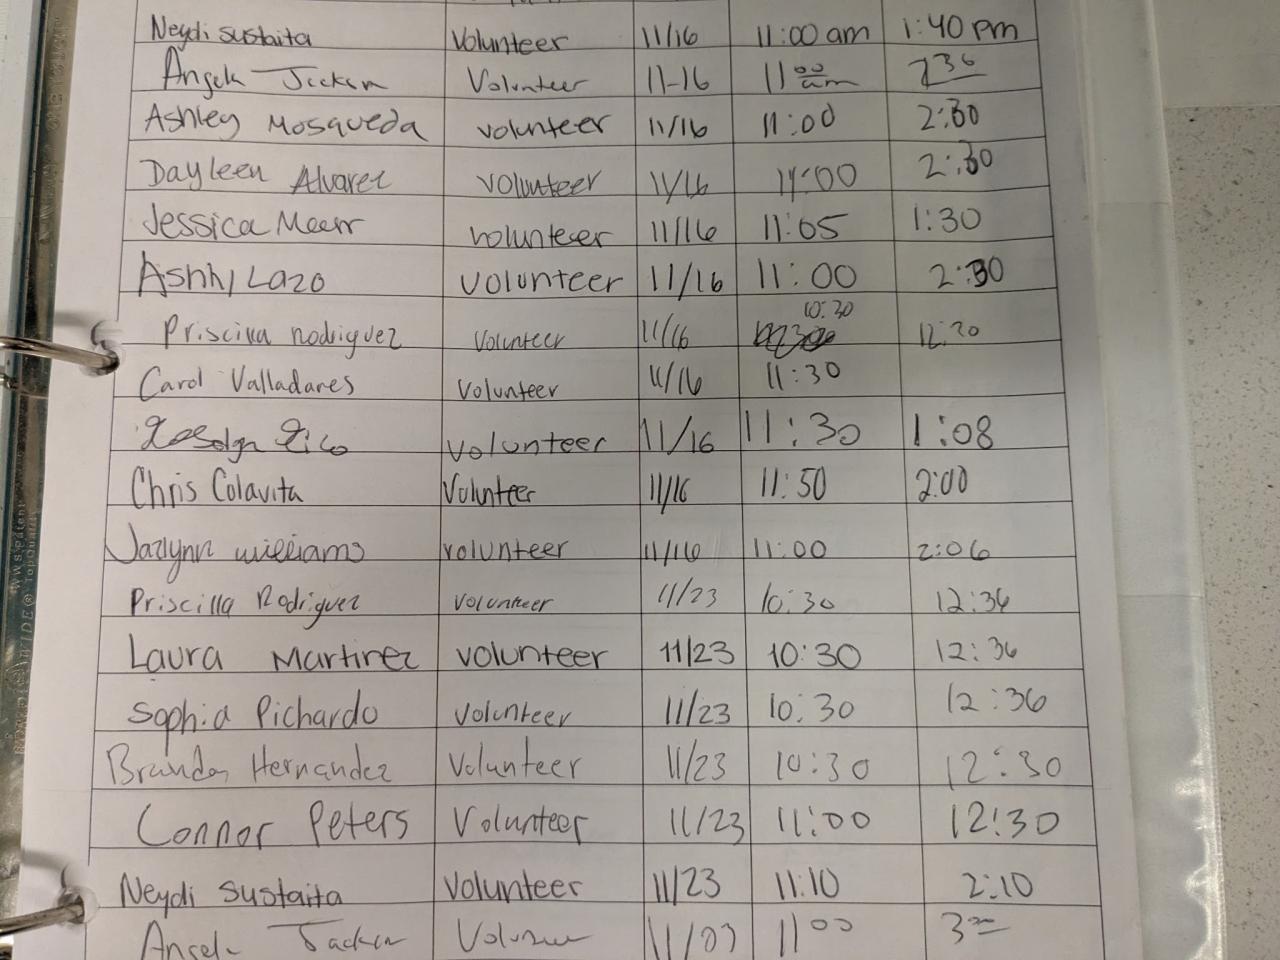 Neydi Sustaita Volunteer 11/16 11:00 am 1:40 pm
Angela Jackson Volunteer 11-16 11 00 am
Ashley Mosqueda volunteer 11/16 11:00 2:30
Dayleen Alvarez volunteer 11/16 11:00 2:30
Jessica volunteer 11/16 11:05 1:30
Lazo volunteer 11/16 11:00 2:30
Priscilla Rodriguez Volunteer 11/16 10:30
Carol Valladares Volunteer 11/16 11:30
Rico volunteer 11/16 11:30 1:08
Chris Colavita Volunteer 11/16 11:50 2:00
Jazlynn williams volunteer 11/16 11:00 2:06
Priscilla Rodriguez volunteer 11/23 10:30 12:36
Laura Martinez volunteer 11/23 10:30 12:36
Sophia Pichardo volunteer 11/23 10:30 12:36
Hernandez Volunteer 11/23 10:30 12:30
Connor Peters Volunteer 11/23 11:00 12:30
Neydi Sustaita Volunteer 11/23 11:10 2:10
Angela Jackson 11 00 3 00